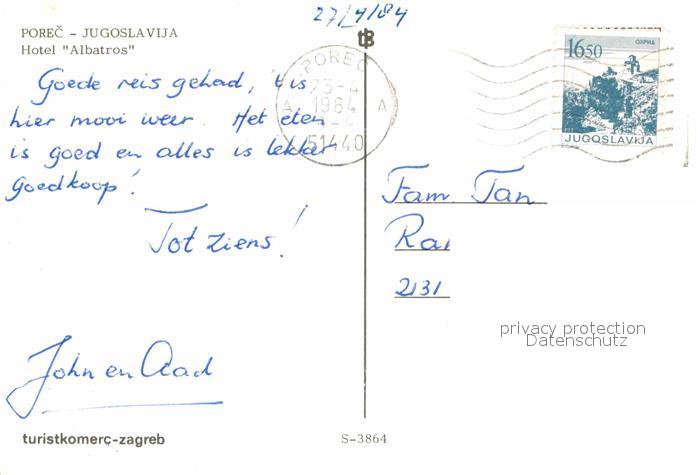 27/4/84
POREČ – JUGOSLAVIJA
Hotel "Albatros"
Goede reis gehad, 't is
hier mooi weer. Het eten
is goed en alles is lekker
goedkoop!
Tot ziens!
John en Aad
POREČ
23-4
A 1984 A
51440
1650
OХРИД
JUGOSLAVIJA
Fam. Tan
Ra
2131
privacy protection
Datenschutz
turistkomerc-zagreb
S-3864